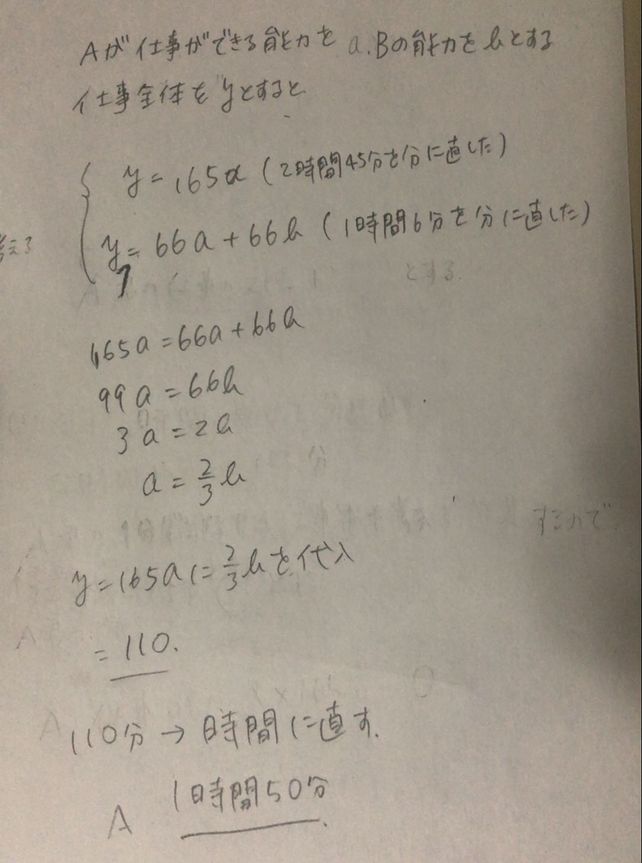 Aが仕事ができる能力をa.Bの能力をbとする
仕事全体をyとすると
y=165a(2時間45分を分に直した)
y=66a+66b(1時間6分を分に直した)
とする.
165a=66a+66b
99a=66b
3a=2b
a=2/3b
y=165aに2/3bを代入
=110.
110分→時間に直す.
A 1時間50分